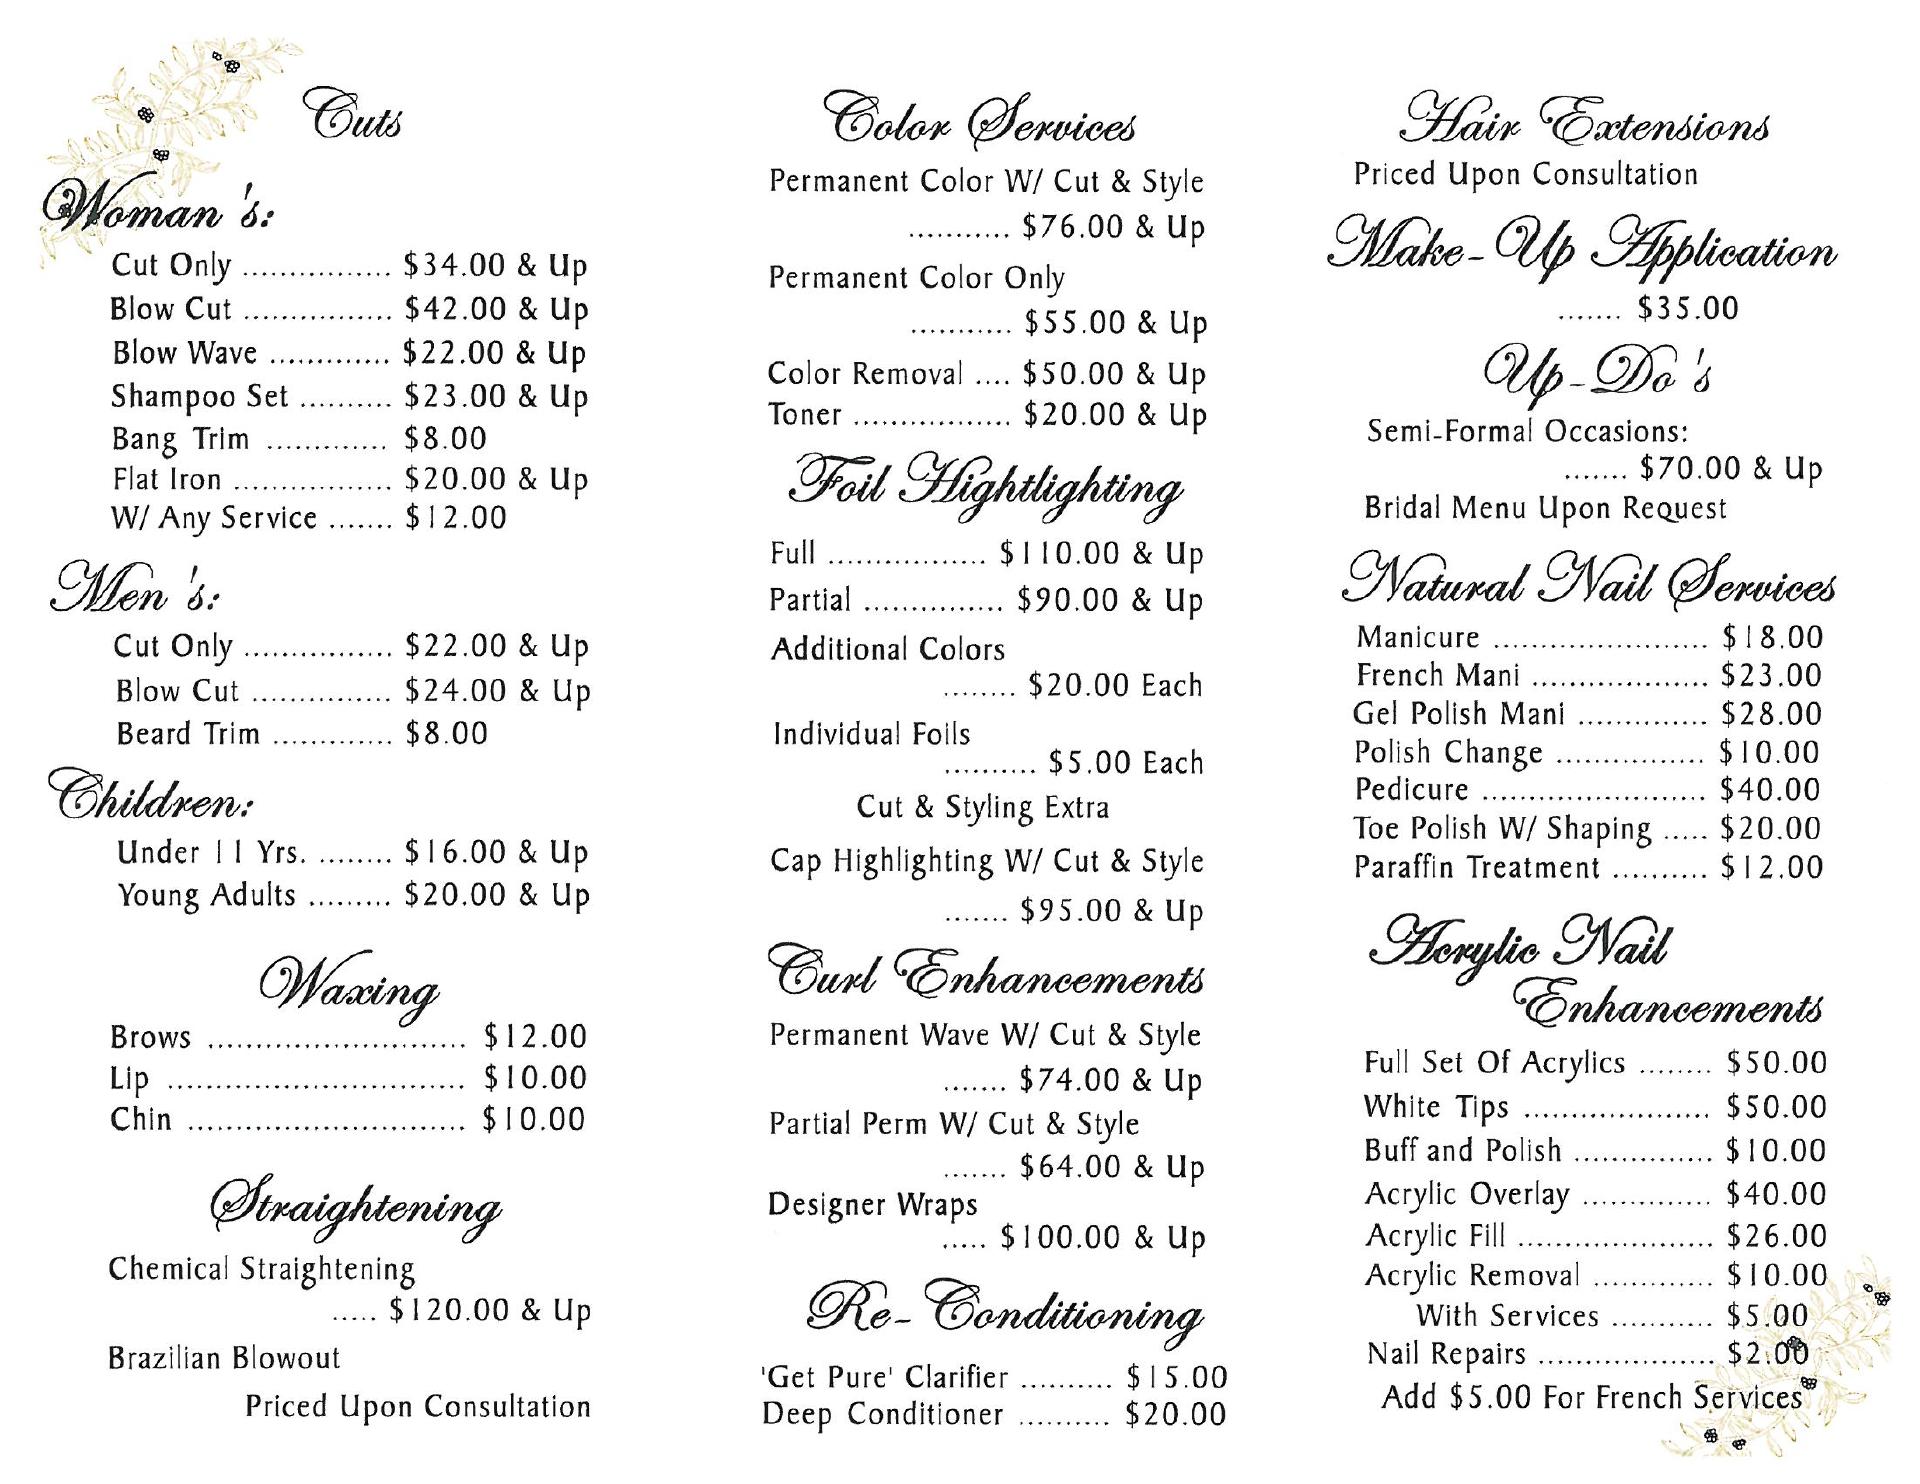 Cuts
Woman's:
Cut Only ............... $34.00 & Up
Blow Cut ............... $42.00 & Up
Blow Wave ............. $22.00 & Up
Shampoo Set .......... $23.00 & Up
Bang Trim ............. $8.00
Flat Iron ................. $20.00 & Up
W/ Any Service ....... $12.00
Men's:
Cut Only ................ $22.00 & Up
Blow Cut ............... $24.00 & Up
Beard Trim ............. $8.00
Children:
Under 11 Yrs. ........ $16.00 & Up
Young Adults ......... $20.00 & Up
Waxing
Brows ........................... $12.00
Lip ............................... $10.00
Chin ............................. $10.00
Straightening
Chemical Straightening
..... $120.00 & Up
Brazilian Blowout
Priced Upon Consultation
Color Services
Permanent Color W/ Cut & Style
........... $76.00 & Up
Permanent Color Only
........... $55.00 & Up
Color Removal .... $50.00 & Up
Toner ................. $20.00 & Up
Foil Hightlighting
Full ................. $110.00 & Up
Partial ............... $90.00 & Up
Additional Colors
........ $20.00 Each
Individual Foils
.......... $5.00 Each
Cut & Styling Extra
Cap Highlighting W/ Cut & Style
....... $95.00 & Up
Curl Enhancements
Permanent Wave W/ Cut & Style
....... $74.00 & Up
Partial Perm W/ Cut & Style
....... $64.00 & Up
Designer Wraps
..... $100.00 & Up
Re-Conditioning
'Get Pure' Clarifier .......... $15.00
Deep Conditioner .......... $20.00
Hair Extensions
Priced Upon Consultation
Make-Up Application
....... $35.00
Up-Do's
Semi-Formal Occasions:
....... $70.00 & Up
Bridal Menu Upon Request
Natural Nail Services
Manicure ....................... $18.00
French Mani ................... $23.00
Gel Polish Mani .............. $28.00
Polish Change ................ $10.00
Pedicure ........................ $40.00
Toe Polish W/ Shaping ..... $20.00
Paraffin Treatment .......... $12.00
Acrylic Nail
Enhancements
Full Set Of Acrylics ........ $50.00
White Tips .................... $50.00
Buff and Polish ............... $10.00
Acrylic Overlay .............. $40.00
Acrylic Fill ..................... $26.00
Acrylic Removal ............. $10.00
With Services ........... $5.00
Nail Repairs ................... $2.00
Add $5.00 For French Services